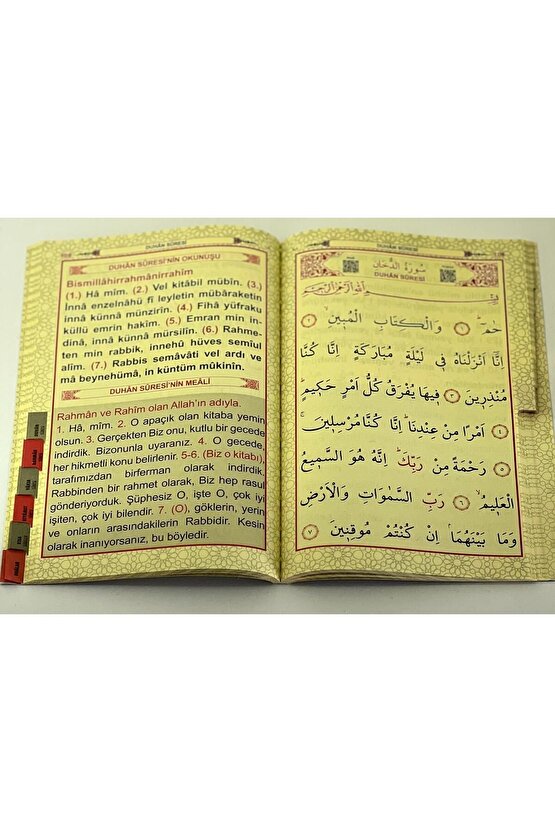 DUHÂN SÛRESİ
DUHÂN SÛRESİ'NİN OKUNUŞU
Bismillâhirrahmânirrahîm
(1.) Hâ mîm. (2.) Vel kitâbil mübîn. (3.)
İnnâ enzelnâhü fî leyletin mübâraketin
innâ künnâ münzirîn. (4.) Fîhâ yüfraku
küllü emrin hakîm. (5.) Emran min in-
dinâ, innâ künnâ mürsilîn. (6.) Rahme-
ten min rabbik, innehû hüves semîul
alîm. (7.) Rabbis semâvâti vel ardı ve
mâ beynehümâ, in küntüm mûkinîn.
DUHÂN SÛRESİ'NİN MEÂLİ
Rahmân ve Rahîm olan Allah'ın adıyla.
1. Hâ, mîm. 2. O apaçık olan kitaba yemin
olsun. 3. Gerçekten Biz onu, kutlu bir gecede
indirdik. Bizonunla uyaranız. 4. O gecede,
her hikmetli konu belirlenir. 5-6. (Biz o kitabı),
tarafımızdan birferman olarak indirdik.
Rabbinden bir rahmet olarak, Biz hep rasul
gönderiyorduk. Şüphesiz O, işte O, çok iyi
işiten, çok iyi bilendir. 7. (O), göklerin, yerin
ve onların arasındakilerin Rabbidir. Kesin
olarak inanıyorsanız, bu böyledir.
DUHÂN SÛRESİ
سُورَةُ الدُّخَانِ
DUHÂN SÛRESİ
بِسْمِ اللّٰهِ الرَّحْمٰنِ الرَّحِيمِ
حٰمٓ ۚ ﴿١﴾ وَالْكِتَابِ الْمُبِينِ ۙ ﴿٢﴾
اِنَّٓا اَنْزَلْنَاهُ فِي لَيْلَةٍ مُبَارَكَةٍ اِنَّا كُنَّا
مُنْذِرِينَ ﴿٣﴾ فِيهَا يُفْرَقُ كُلُّ اَمْرٍ حَكِيمٍ ۙ
﴿٤﴾ اَمْرًا مِنْ عِنْدِنَا ۜ اِنَّا كُنَّا مُرْسِلِينَ ۚ
﴿٥﴾ رَحْمَةً مِنْ رَبِّكَ ۜ اِنَّهُ هُوَ السَّمِيعُ
الْعَلِيمُ ۙ ﴿٦﴾ رَبِّ السَّمٰوَاتِ وَالْاَرْضِ
وَمَا بَيْنَهُمَا ۢ اِنْ كُنْتُمْ مُوقِنِينَ ﴿٧﴾